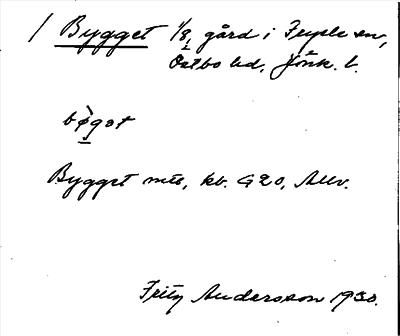 / Bygget 1/8, gård i Fryele sn,
Östbo hd, Jönk. l.
bỳgat
Bygget mtl, kb. G20, Allv.
Fritz Andersson 1930.